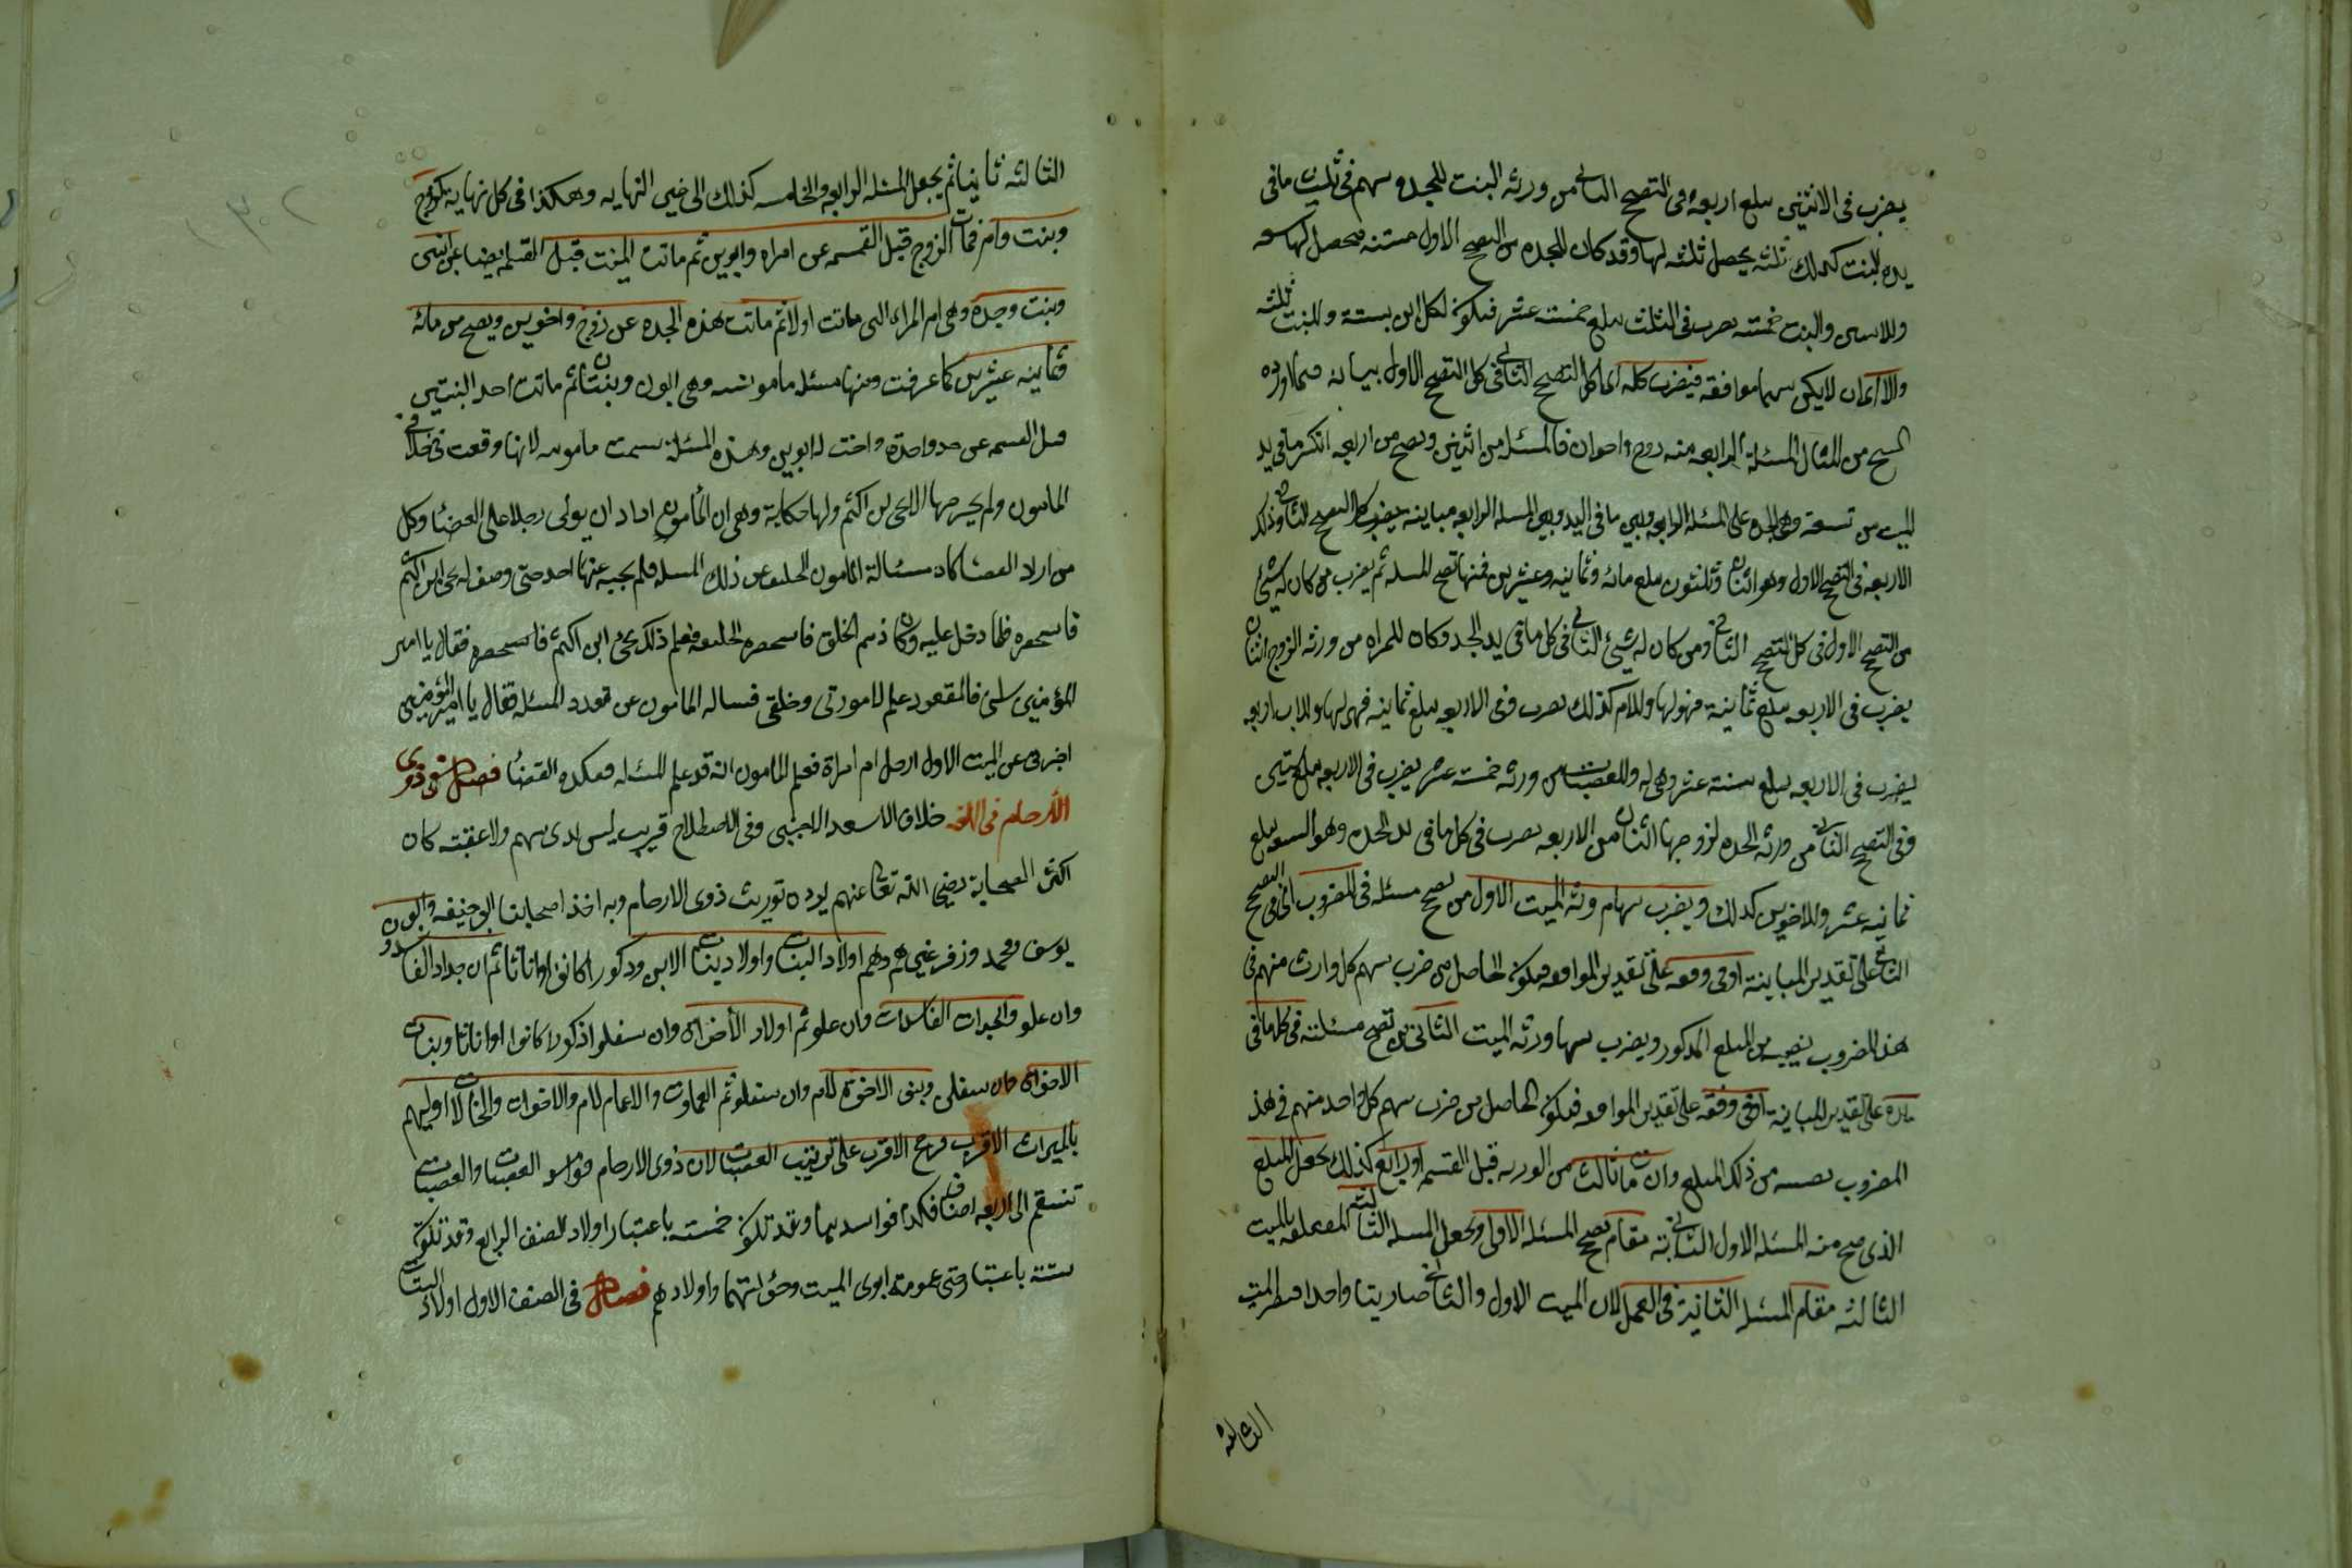 يضرب في الاثنين يبلغ اربعة وفي التصحيح الثاني من ورثة البنت للجدة سهم في ثلث ما في
يده للبنت كذلك ثلثه يحصل ثلثه لها وقد كان للجده من التصحيح الاول ستة فيحصل لها تسعه
وللابنين والبنت خمسة يضرب في الثلث يبلغ خمسة عشر فيكون لكل ابن ستة وللبنت ثلثه
والا اى ان لا يكن بينهما موافقه فيضرب كله اى كل التصحيح الثاني في كل التصحيح الاول بيانه فيما اورده
الشيخ من المثال المسئلة الرابعه منه زوج واخوان فالمسئلة من اثنين وتصح من اربعه انكسر ما في يد
الميت من تسعة وهي الجده على المسئلة الرابعه وبين ما في اليد وبين المسئلة الرابعه مباينة يضرب كل التصحيح الثاني وذلك
الاربعه في التصحيح الاول وهو اثنان وثلثون يبلغ مائه وثمانيه وعشرين فمنها تصح المسئله ثم يضرب من كان له شئ
من التصحيح الاول في كل التصحيح الثاني ومن كان له شئ الثاني في كل ما في يد الجد وكان للمراه من ورثه الزوج اثنان
يضرب في الاربعه يبلغ ثمانية فهو لها وللام كذلك يضرب في الاربعه يبلغ ثمانيه فهي لها وللاب اربعه
يضرب في الاربعه يبلغ ستة عشر وهي له من ورثه خمسة عشر يضرب في الاربعه يبلغ ستين
وفي التصحيح الثاني من ورثه الجده لزوجها اثنان من الاربعه يضرب في كل ما في يد الجده وهو التسعه يبلغ
ثمانيه عشر وللاخوين كذلك ويضرب سهام ورثه الميت الاول من تصحيح مسئله في المضروب اى في التصحيح
الثاني على تقدير المباينة او في وفقه على تقدير الموافقه فيكون الحاصل من ضرب سهم كل وارث منهم في
هذا المضروب نصيبه من المبلغ المذكور ويضرب سهام ورثه الميت الثاني من تصحيح مسئلته في كل ما في
يده على تقدير المباينة او في وفقه على تقدير الموافقه فيكون الحاصل من ضرب سهم كل واحد منهم في هذا
المضروب نصيبه من ذلك المبلغ وان مات ثالث من الورثه قبل القسمه او رابع كذلك يجعل المبلغ
الذي صح منه المسئله الاول الثانية مقام تصحيح المسئله الاولى ويجعل المسئله الثالثه المتعلقه بالميت
الثالثه مقام المسئلة الثانية في العمل لان الميت الاول والثاني صار ميتا واحدا
الثالثه
١٣٠٢
الثالثه ثانيا ثم يجعل المسئله الرابعه والخامسه كذلك الى النهايه وهكذا في كل نهايه كزوج
وبنت وام فمات الزوج قبل القسمه عن امراه وابوين ثم ماتت البنت قبل القسمه ايضا عن ابنين
وبنت وجدة وهي ام المراه التي ماتت اولا ثم ماتت هذه الجده عن زوج واخوين ويصح من مائه
وثمانيه عشرين كما عرفت ومنها مسئله مامونيه وهي ابوان وبنتان ثم ماتت احد البنتين
قبل القسمه عن جد وجدة واخت لابوين وهذه المسئلة سميت مامونيه لانها وقعت في خلافة
المامون ولم يخرجها الا يحيى بن اكثم ولها حكاية وهي ان المأمون اراد ان يولى رجلا على القضا وكل
من اراد القضا كان مسئالة المامون الخليفه عن ذلك المسئله فلم يجبه عنها احد حتى وصف له يحيى ابن اكثم
فاستحضره فلما دخل عليه وكان ذميم الخلق فاستحقره الخليفه فعلم ذلك يحيى ابن اكثم فقال يا امير
المؤمنين سلني فالمقصود علم لا صورتي وخلقي فساله المامون عن المسئله فقال يا امير المؤمنين
اخبرني عن الميت الاول ارجل ام امراة فعلم المامون انه قد علم المسئله القضا فصل في ذوى
الارحام في اللغه خلاف الاجنبي وفي الاصطلاح قريب ليس بذى سهم ولا عصبة كان
اكثر الصحابة رضي الله تعالى عنهم يرون توريث ذوى الارحام وبه اخذ اصحابنا ابو حنيفه وابو
يوسف ومحمد وزفر وهم اولاد البنات واولاد بنات الابن ذكورا كانوا او اناثا ثم اجداد الفاسدو
وان علو والجدات الفاسدات وان علو ثم اولاد الأخوات وان سفلوا ذكورا كانوا او اناثا وبنات
الاخوان وان سفلن وبنى الاخوة لام وان سفلو ثم العمات والاعمام لام والاخوات والخالات اوليهم
بالميراث الاقرب فرجح الاقرب على ترتيب العصبات لان ذوى الارحام العصبات والعصبات
تنقسم الى اربعه اصناف فكذا وقد تكون خمسة باعتبار اولاد الصنف الرابع وقد تكون
ستة باعتبار عمومة ابوى الميت وخؤلتهما واولادهم فصل في الصنف الاول اولاد البنات